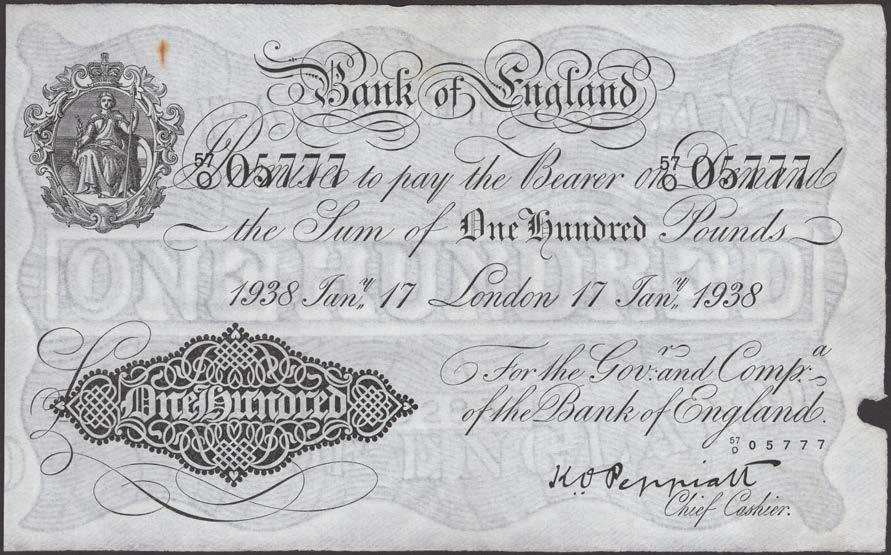 Bank of England
57/O 05777 57/O 05777
I Promise to pay the Bearer on Demand
the Sum of One Hundred Pounds
1938 Jan.y 17 London 17 Jan.y 1938
For the Gov.r and Comp.a
of the Bank of England.
57/O 05777
£ One Hundred
K.O. Peppiatt
Chief Cashier.
ONE HUNDRED